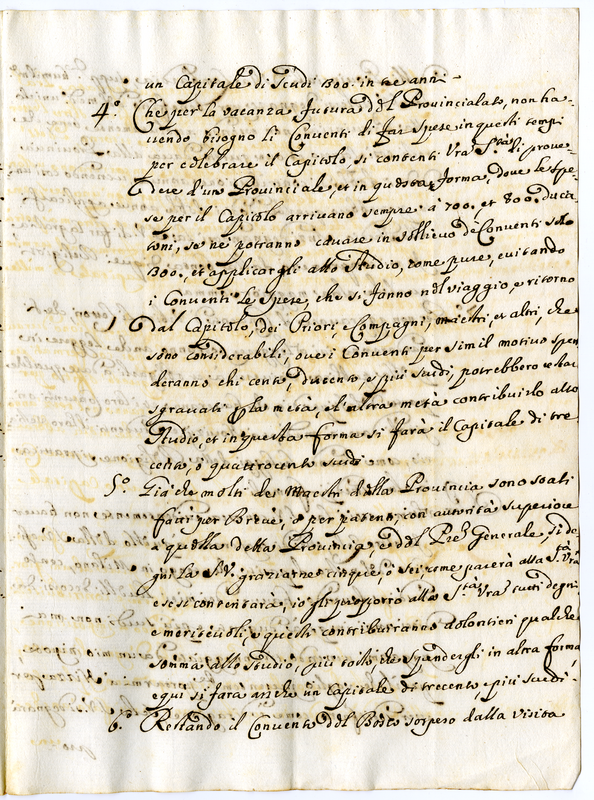 un Capitale di Scudi 300. in tre anni
4.° Che per la vacanza futura del Provincialato, non ha-
uendo bisogno li Conuenti di far spese in questi tempi
per celebrare il Capitolo, si contenti Vra S.tà di proue-
dere d'un Provinciale, et in questa forma, doue le spe-
se per il Capitolo arriuano sempre à 700. et 800. duca-
toni, se ne potranno cauare in sollieuo de Conuenti
300., et applicargli allo Studio, come pure, euitando
i Conuenti le spese, che si fanno nel viaggio, e ritorno
dal Capitolo, dei Priori, e Compagni, maestri, et altri, che
sono considerabili, oue i Conuenti per simil motiuo spen
deranno chi cento, ducento, e più scudi, potrebbero restar
sgrauati la metà, e l'altra metà contribuirlo allo
Studio, et in questa forma si farà il Capitale di tre
cento, o quattrocento scudi
5.° Già che molti dei Maestri della Provincia sono stati
fatti per Breue, o per patenti, con autorità superiore
à quella della Provincia, e del Pre Generale, si de-
gni la S.V. graziarne cinque, o sei come parerà alla S.tà Vra
e se si contentarà, io gli proporrò alla S.tà Vra tutti degni
e meriteuoli, e questi contribuiranno volontieri qualche
somma allo Studio, più tosto, che spendergli in altra forma
e qui si farà anche un Capitale di trecento, e più scudi.
6. Restando il Conuento del Bosco sospeso dalla Visita